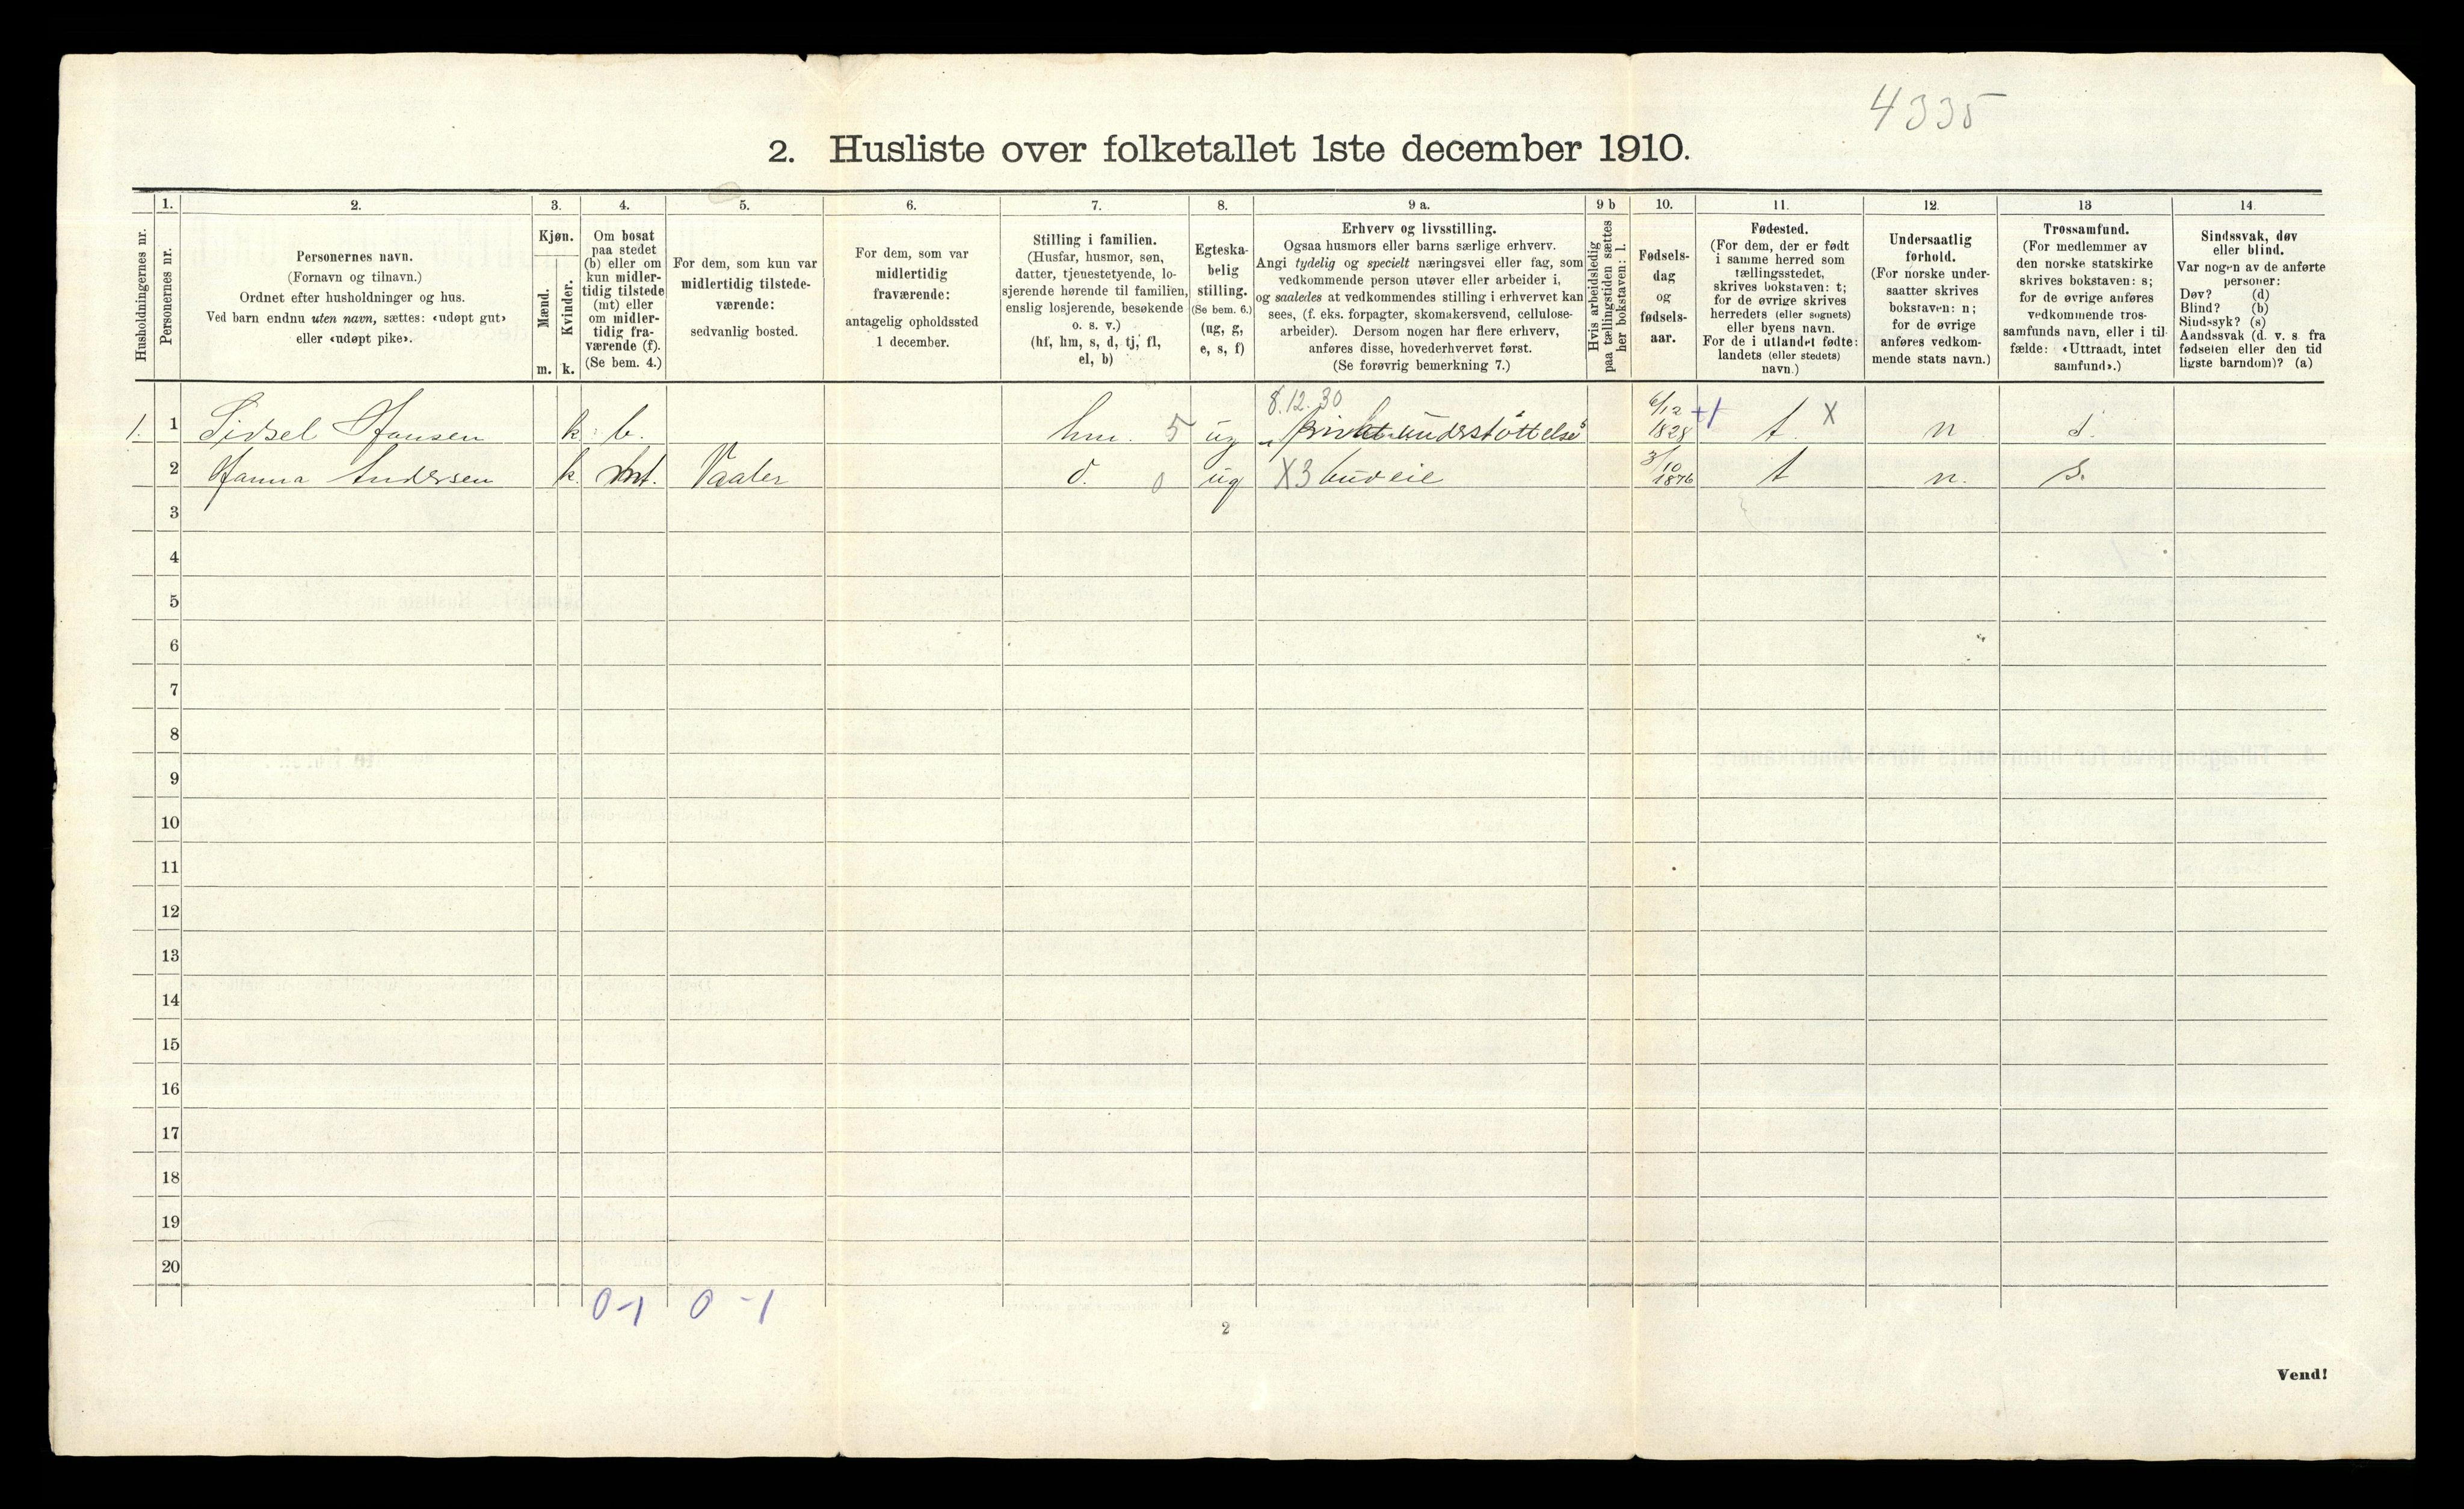 4335
2. Husliste over folketallet 1ste december 1910.
Husholdningernes nr.
1.
Personernes nr.
2.
Personernes navn.
(Fornavn og tilnavn.)
Ordnet efter husholdninger og hus.
Ved barn endnu uten navn, sættes: «udøpt gut»
eller «udøpt pike».
3.
Kjøn.
Mænd.
Kvinder.
m. k.
4.
Om bosat
paa stedet
(b) eller om
kun midler-
tidig tilstede
(mt) eller
om midler-
tidig fra-
værende (f).
(Se bem. 4.)
5.
For dem, som kun var
midlertidig tilstede-
værende:
sedvanlig bosted.
6.
For dem, som var
midlertidig
fraværende:
antagelig opholdssted
1 december.
7.
Stilling i familien.
(Husfar, husmor, søn,
datter, tjenestetyende, lo-
sjerende hørende til familien,
enslig losjerende, besøkende
o. s. v.)
(hf, hm, s, d, tj, fl,
el, b)
8.
Egteska-
belig
stilling.
(Se bem. 6.)
(ug, g,
e, s, f)
9 a.
Erhverv og livsstilling.
Ogsaa husmors eller barns særlige erhverv.
Angi tydelig og specielt næringsvei eller fag, som
vedkommende person utøver eller arbeider i,
og saaledes at vedkommendes stilling i erhvervet kan
sees, (f. eks. forpagter, skomakersvend, cellulose-
arbeider). Dersom nogen har flere erhverv,
anføres disse, hovederhvervet først.
(Se forøvrig bemerkning 7.)
9 b
Hvis arbeidsledig
paa tællingstiden sættes
her bokstaven: l.
10.
Fødsels-
dag
og
fødsels-
aar.
11.
Fødested.
(For dem, der er født
i samme herred som
tællingsstedet,
skrives bokstaven: t;
for de øvrige skrives
herredets (eller sognets)
eller byens navn.
For de i utlandet fødte:
landets (eller stedets)
navn.)
12.
Undersaatlig
forhold.
(For norske under-
saatter skrives
bokstaven: n;
for de øvrige
anføres vedkom-
mende stats navn.)
13
Trossamfund.
(For medlemmer av
den norske statskirke
skrives bokstaven: s;
for de øvrige anføres
vedkommende tros-
samfunds navn, eller i til-
fælde: «Uttraadt, intet
samfund».)
14.
Sindssvak, døv
eller blind.
Var nogen av de anførte
personer:
Døv? (d)
Blind? (b)
Sindssyk? (s)
Aandssvak (d. v. s. fra
fødselen eller den tid-
ligste barndom)? (a)
8.12.30
1. 1 Sidsel Hansen k. b. hm. 5 ug privat understöttelse 6/12 1828 +1 t. X n s.
2 Hanna Andersen k. mt. Vaaler d. 0 ug X3 budeie 3/10 1876 t n. s.
3
4
5
6
7
8
9
10
11
12
13
14
15
16
17
18
19
20
0-1 0-1
2
Vend!